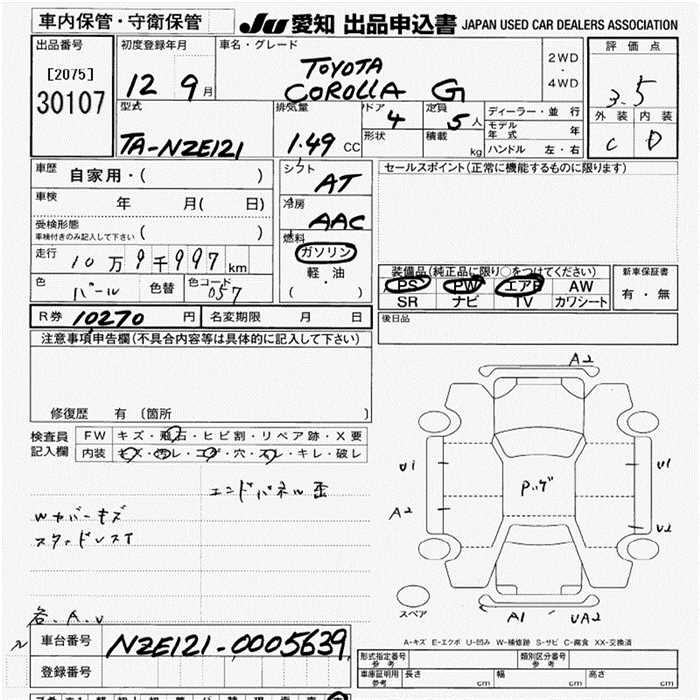 車内保管・守衛保管
JU 愛知 出品申込書 JAPAN USED CAR DEALERS ASSOCIATION
出品番号
[2075]
30107
初度登録年月
12 9月
車名・グレード
TOYOTA
COROLLA G
2WD
・
4WD
評価点
3.5
外装 内装
C D
型式
TA-NZE121
排気量
1.49 CC
ドア
4
形状
定員
5人
積載
kg
ディーラー・並行
モデル年式 年
ハンドル 左・右
車歴
自家用・( )
車検
年 月( 日)
受検形態
車検付きのみ記入して下さい ( )
走行
10万9千997km
色
パール
色替
色コード
057
シフト
AT
冷房
AAC
燃料
ガソリン
軽・油
( )
セールスポイント(正常に機能するものに限ります)
装備品(純正品に限り○をつけてください)
PS PW エアB AW
SR ナビ TV カワシート
新車保証書
有・無
R券 10270 円
名変期限 月 日
後日品
注意事項申告欄(不具合内容等は具体的に記入して下さい)
修復歴 有 〔箇所 〕
検査員
記入欄
FW キズ・飛石・ヒビ割・リペア跡・X要
内装 キズ・汚レ・コゲ・穴・スレ・キレ・破レ
エンドパネル歪
Wカバーキズ
スタッドレスT
各.A.U
A2
U1
A2
U1
U2
Pハゲ
スペア
A1
UA2
A-キズ E-エクボ U-凹み W-補修跡 S-サビ C-腐食 XX-交換済
車台番号
NZE121-0005639
登録番号
形式指定番号
参考
類別区分番号
参考
車庫証明用
参考
長さ cm
幅 cm
高さ cm